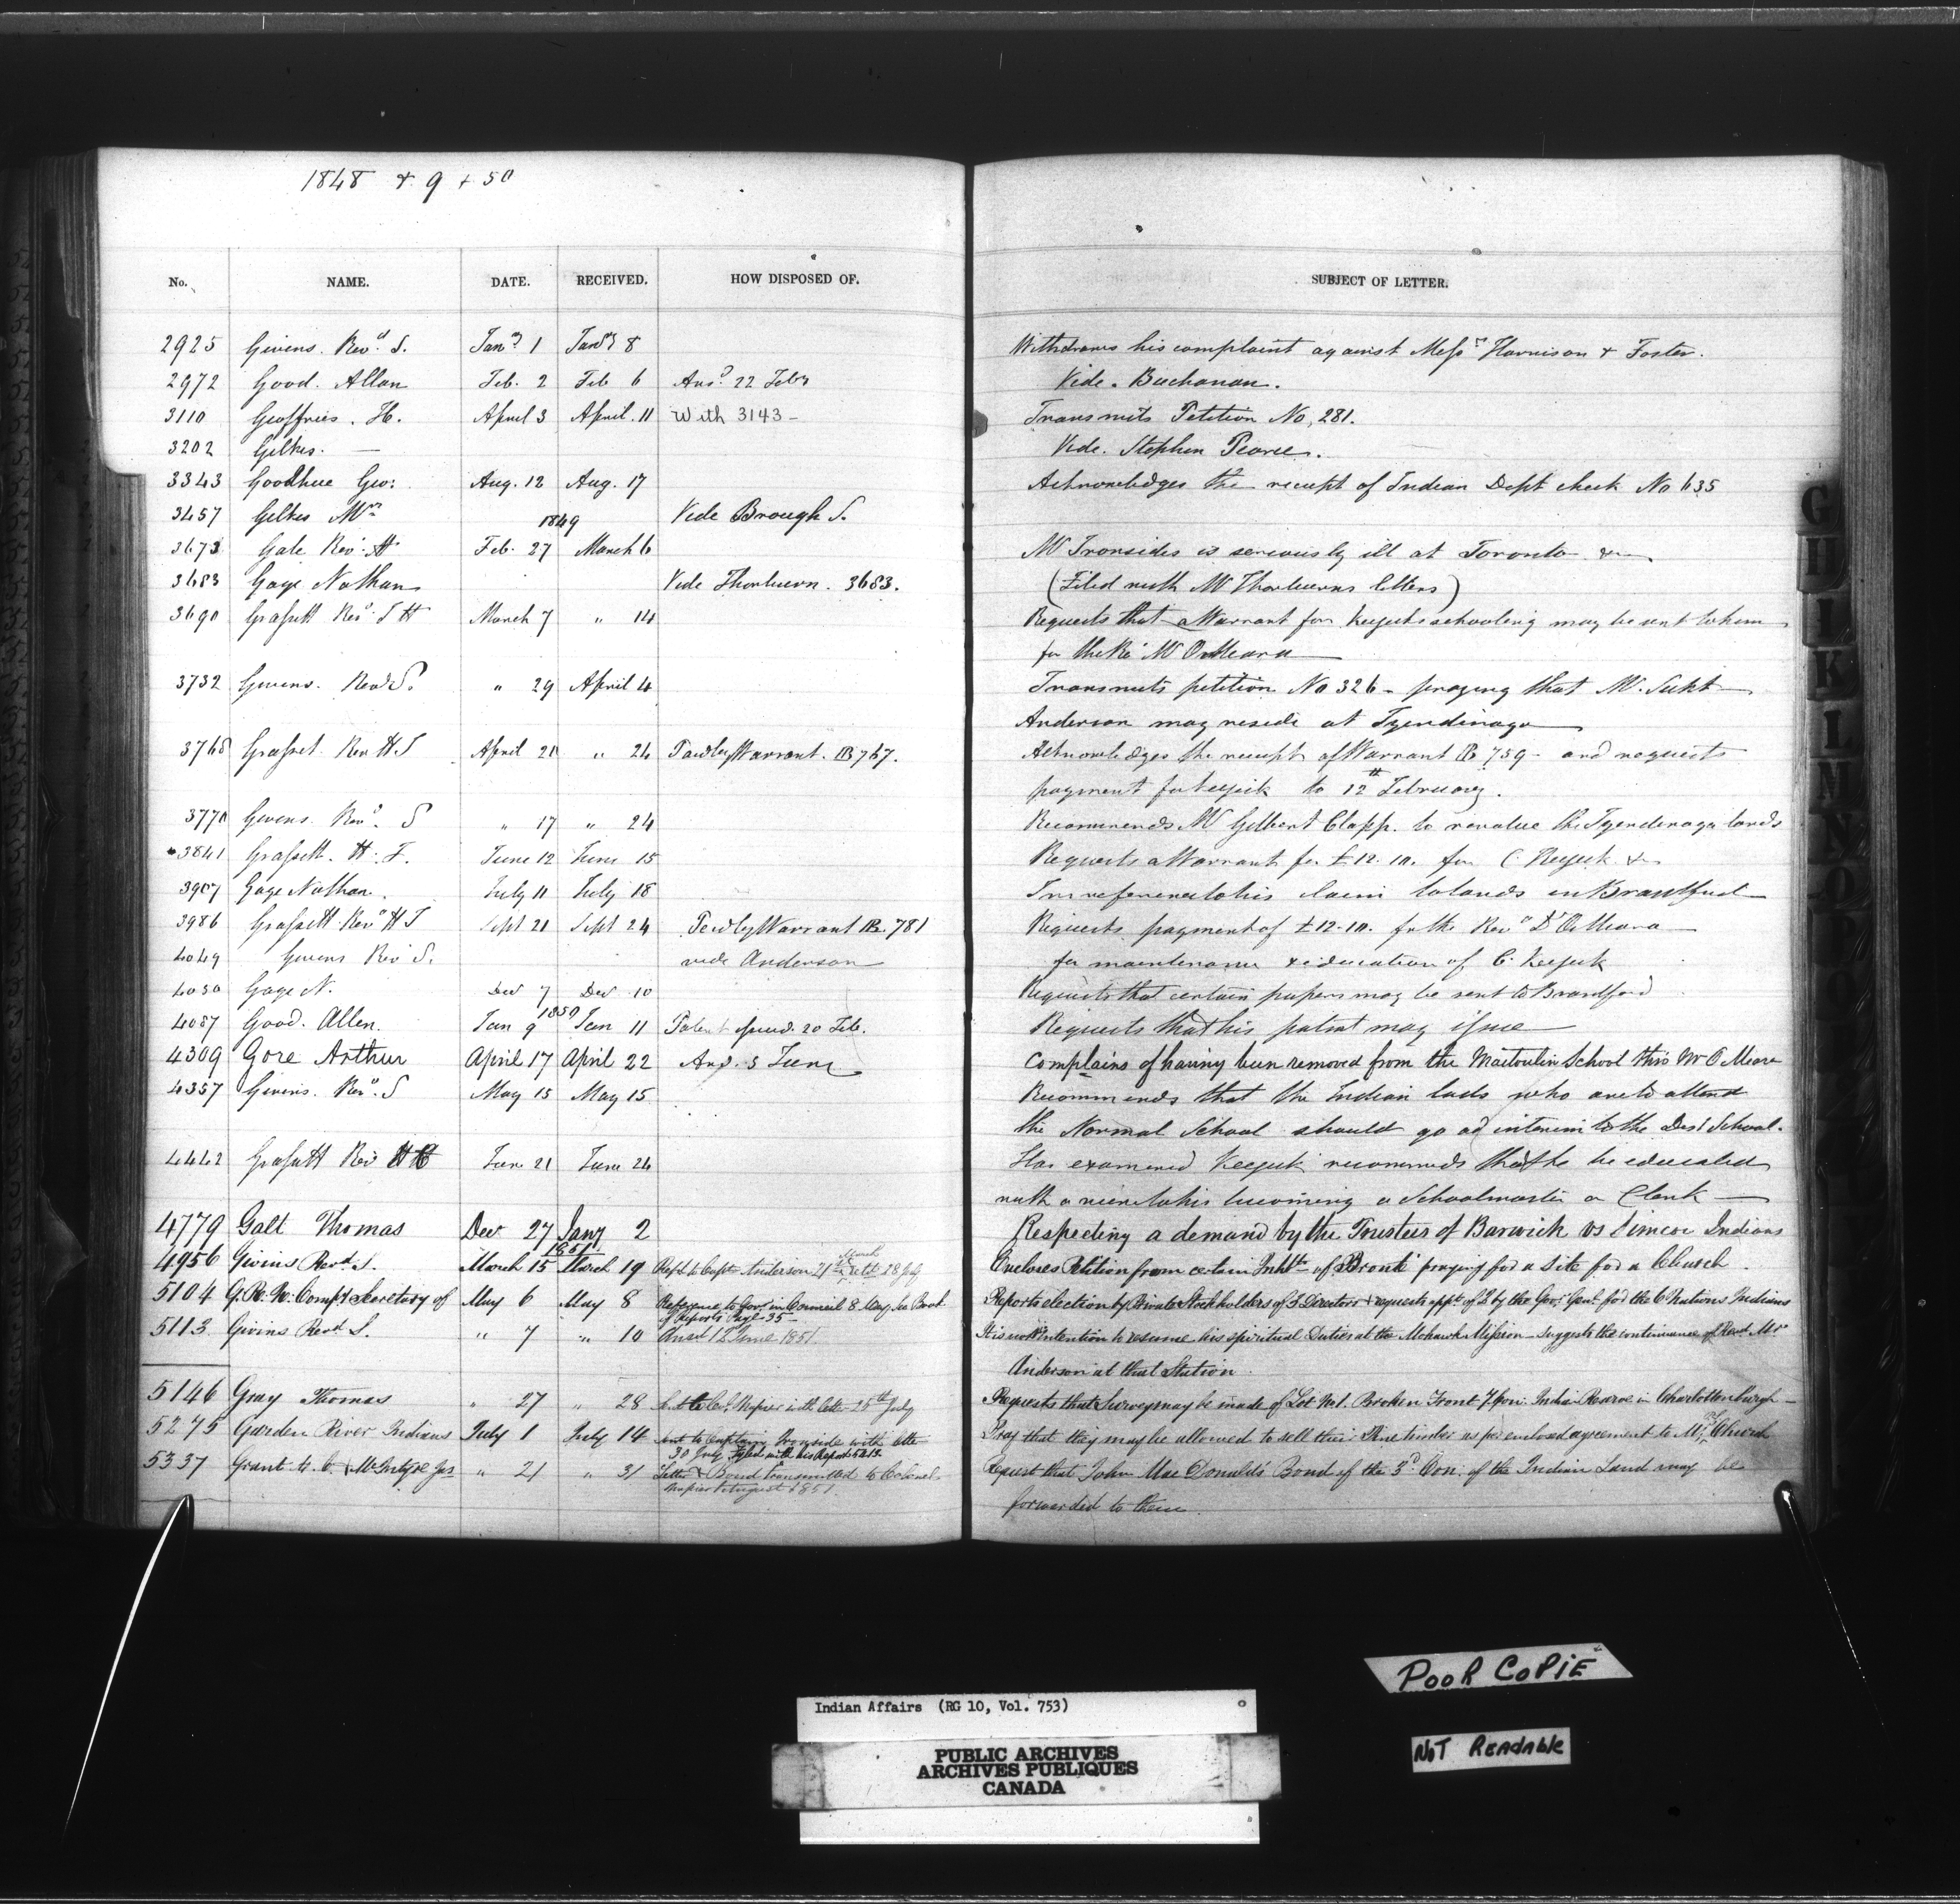 1848 & 9 + 50
No. NAME. DATE. RECEIVED. HOW DISPOSED OF. SUBJECT OF LETTER.
2925 Givens. Revd. S. Jany 1 Jany 8 Withdraws his complaint against Messrs Harrison & Foster.
2972 Good. Allan Feb. 2 Feb 6 Ansd. 22 Feby Vide. Buchanan.
3110 Geoffries. H. April 3 April. 11 With 3143 – Transmits Petition No, 281.
3202 Gilkes. — Vide. Stephen Pearce.
3343 Goodhue Geo: Aug. 12 Aug. 17 Acknowledges the receipt of Indian Dept check No 635
3457 Gilkes Mrs Vide Brough S.
1849
3673 Gale Revd. H Feb. 27 March 6 Mr Ironsides is seriously ill at Toronto &c
3683 Gage Nathan Vide Thorburn. 3683. (Filed with Mr Thorburns letters)
3690 Grassett Revd. J H March 7 " 14 Requests that a Warrant for Keejeks schooling may be sent to him
for the Rev Mr O'Meara
3732 Givens. Revd S. " 29 April 4 Transmits petition No 326 – praying that Mr. Supt
Anderson may reside at Tyendinaga
3768 Grasset. Rev H J April 21 " 24 Paid by Warrant. B 767. Acknowledges the receipt of Warrant B 759 – and requests
payment for Keejeik to 12th February.
3770 Givens. Revd. S " 17 " 24 Recommends Mr Gilbert Clapp. to revalue the Tyendenaga lands
3841 Grassett. H. J. June 12 June 15 Requests a Warrant for £12.10. for C. Keejeck &c
3907 Gage Nathan. July 11 July 18 In reference to his claim to lands in Brantford
3986 Grassett Revd H J Sept 21 Sept 24 Paid by Warrant B. 781 Requests payment of £12.10. for the Revd Dr O'Meara
4049 Givens Rev S. vide Anderson for maintenance & education of C. Keejeck
4050 Gage N. Dec 7 Dec 10 Requests that certain papers may be sent to Brantford
1850
4087 Good. Allen. Jan 9 Jan 11 Patent issued. 20 Feb. Requests that his patent may issue
4309 Gore Arthur April 17 April 22 Ans. 5 June Complains of having been removed from the Maitoulin School thro' Mr O'Meara
4357 Givins. Revd. S May 15 May 15. Recommends that the Indian lads who are to attend
the Normal School should go ad interim to the Dist School.
4442 Grassett Rev H June 21 June 24 Has examined Keejeck recommends that he be educated
with a view to his becoming a Schoolmaster or Clerk —
4779 Galt Thomas Dec 27 Jany 2 Respecting a demand by the Trustees of Barwick vs Simcoe Indians
1851
4956 Givins Revd S. March 15 March 19 Refd to Captn Anderson 21st March 28 July Encloses Petition from certain Inhbts of Bronte praying for a Site for a Church.
5104 G. R. N. Compy Secretary of May 6 May 8 Reference to Govr in Council 8 May See Book
of Reports Page 35 – Reports election by Private Stockholders of 3 Directors & requests appt. of 2 by the Gov: Genl. for the 6 Nations Indians
5113 Givins Revd S. " 7 " 10 Ansd 12 June 1851. It is not his intention to resume his spiritual Duties at the Mohawk Mission – suggests the continuance of Revd Mr
Anderson at that Station.
5146 Gray Thomas " 27 " 28 Col. Napier with letter 25th July Requests that Survey may be made of Lot No 1. Broken Front 7 Con. Indian Reserve in Charlottenburgh –
5275 Garden River Indians July 1 July 14 Sent to Captain Ironside with letter
30 July Fyled with his Report Pray that they may be allowed to sell their Pine timber as per enclosed agreement to Mr. Church
5337 Grant & McIntyre Jas " 21 " 31 Letter & Bond transmitted to Colonel
Napier August 1851. Request that John Mac Donald's Bond of the 3d Con. of the Indian Land may be
forwarded to them
G
H
I
K
L
M
N
O
POOR COPIE
NOT READABLE
Indian Affairs (RG 10, Vol. 753)
PUBLIC ARCHIVES
ARCHIVES PUBLIQUES
CANADA